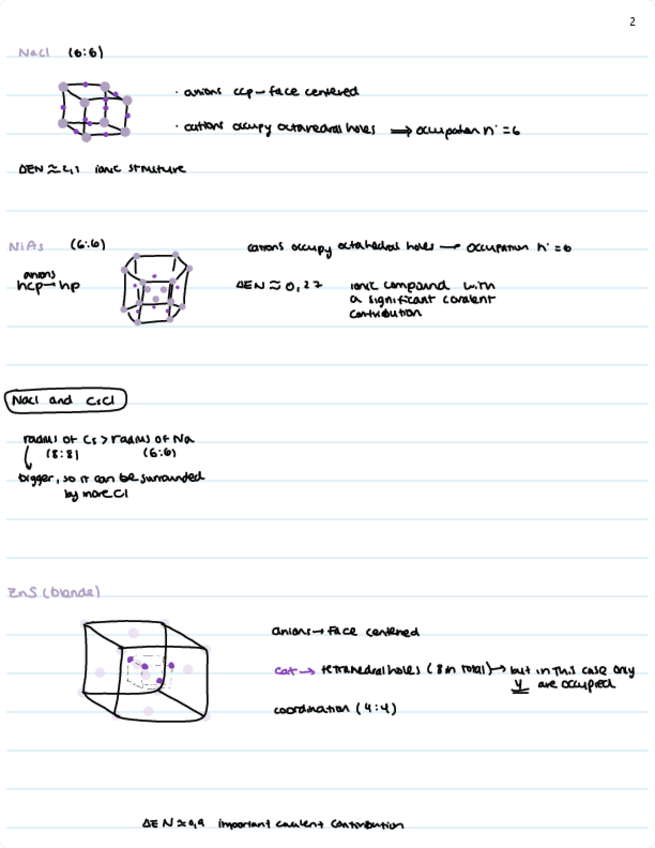 2
NaCl (6:6)
· anions ccp – face centered
· cations occupy octahedral holes ⟹ occupation n° = 6
ΔEN ≈ 2,1 ionic structure
NiAs (6:6)
cations occupy octahedral holes → occupation n° = 6
anions
hcp → hp
ΔEN ≈ 0,27 ionic compound with
a significant covalent
contribution
NaCl and CsCl
radius of Cs > radius of Na
(8:8) (6:6)
bigger, so it can be surrounded
by more Cl
ZnS (blende)
anions → face centered
cat → tetrahedral holes (8 in total) → but in this case only
4 are occupied
coordination (4:4)
ΔEN ≈ 0,9 important covalent contribution